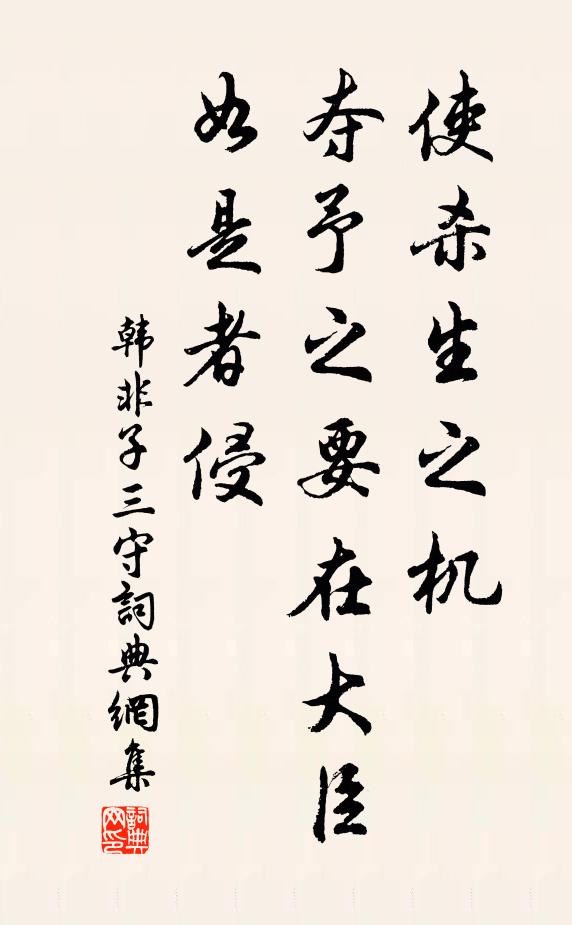 使杀生之机
夺予之要在大臣
如是者侵
韩非子三守詞典網集
詞典网印